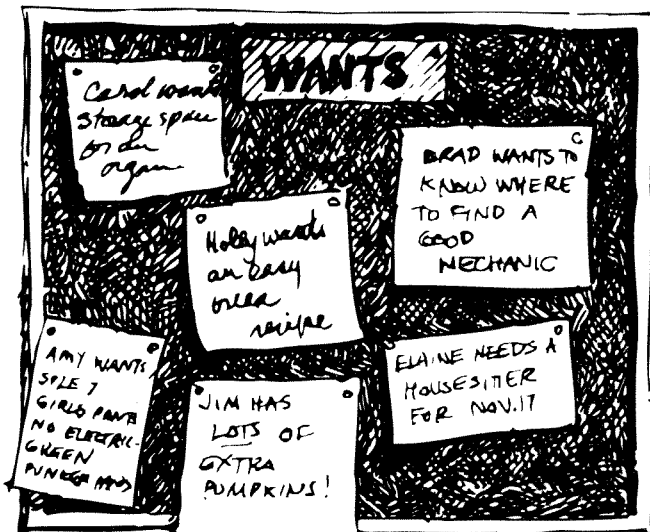 WANTS
Carol wants
storage space
for an
organ
BRAD WANTS TO
KNOW WHERE
TO FIND A
GOOD
MECHANIC
Holly wants
an easy
bread
recipe
AMY WANTS
GIRLS PANTS
NO ELECTRIC-
GREEN
JIM HAS
LOTS OF
EXTRA
PUMPKINS!
ELAINE NEEDS A
HOUSESITTER
FOR NOV.17